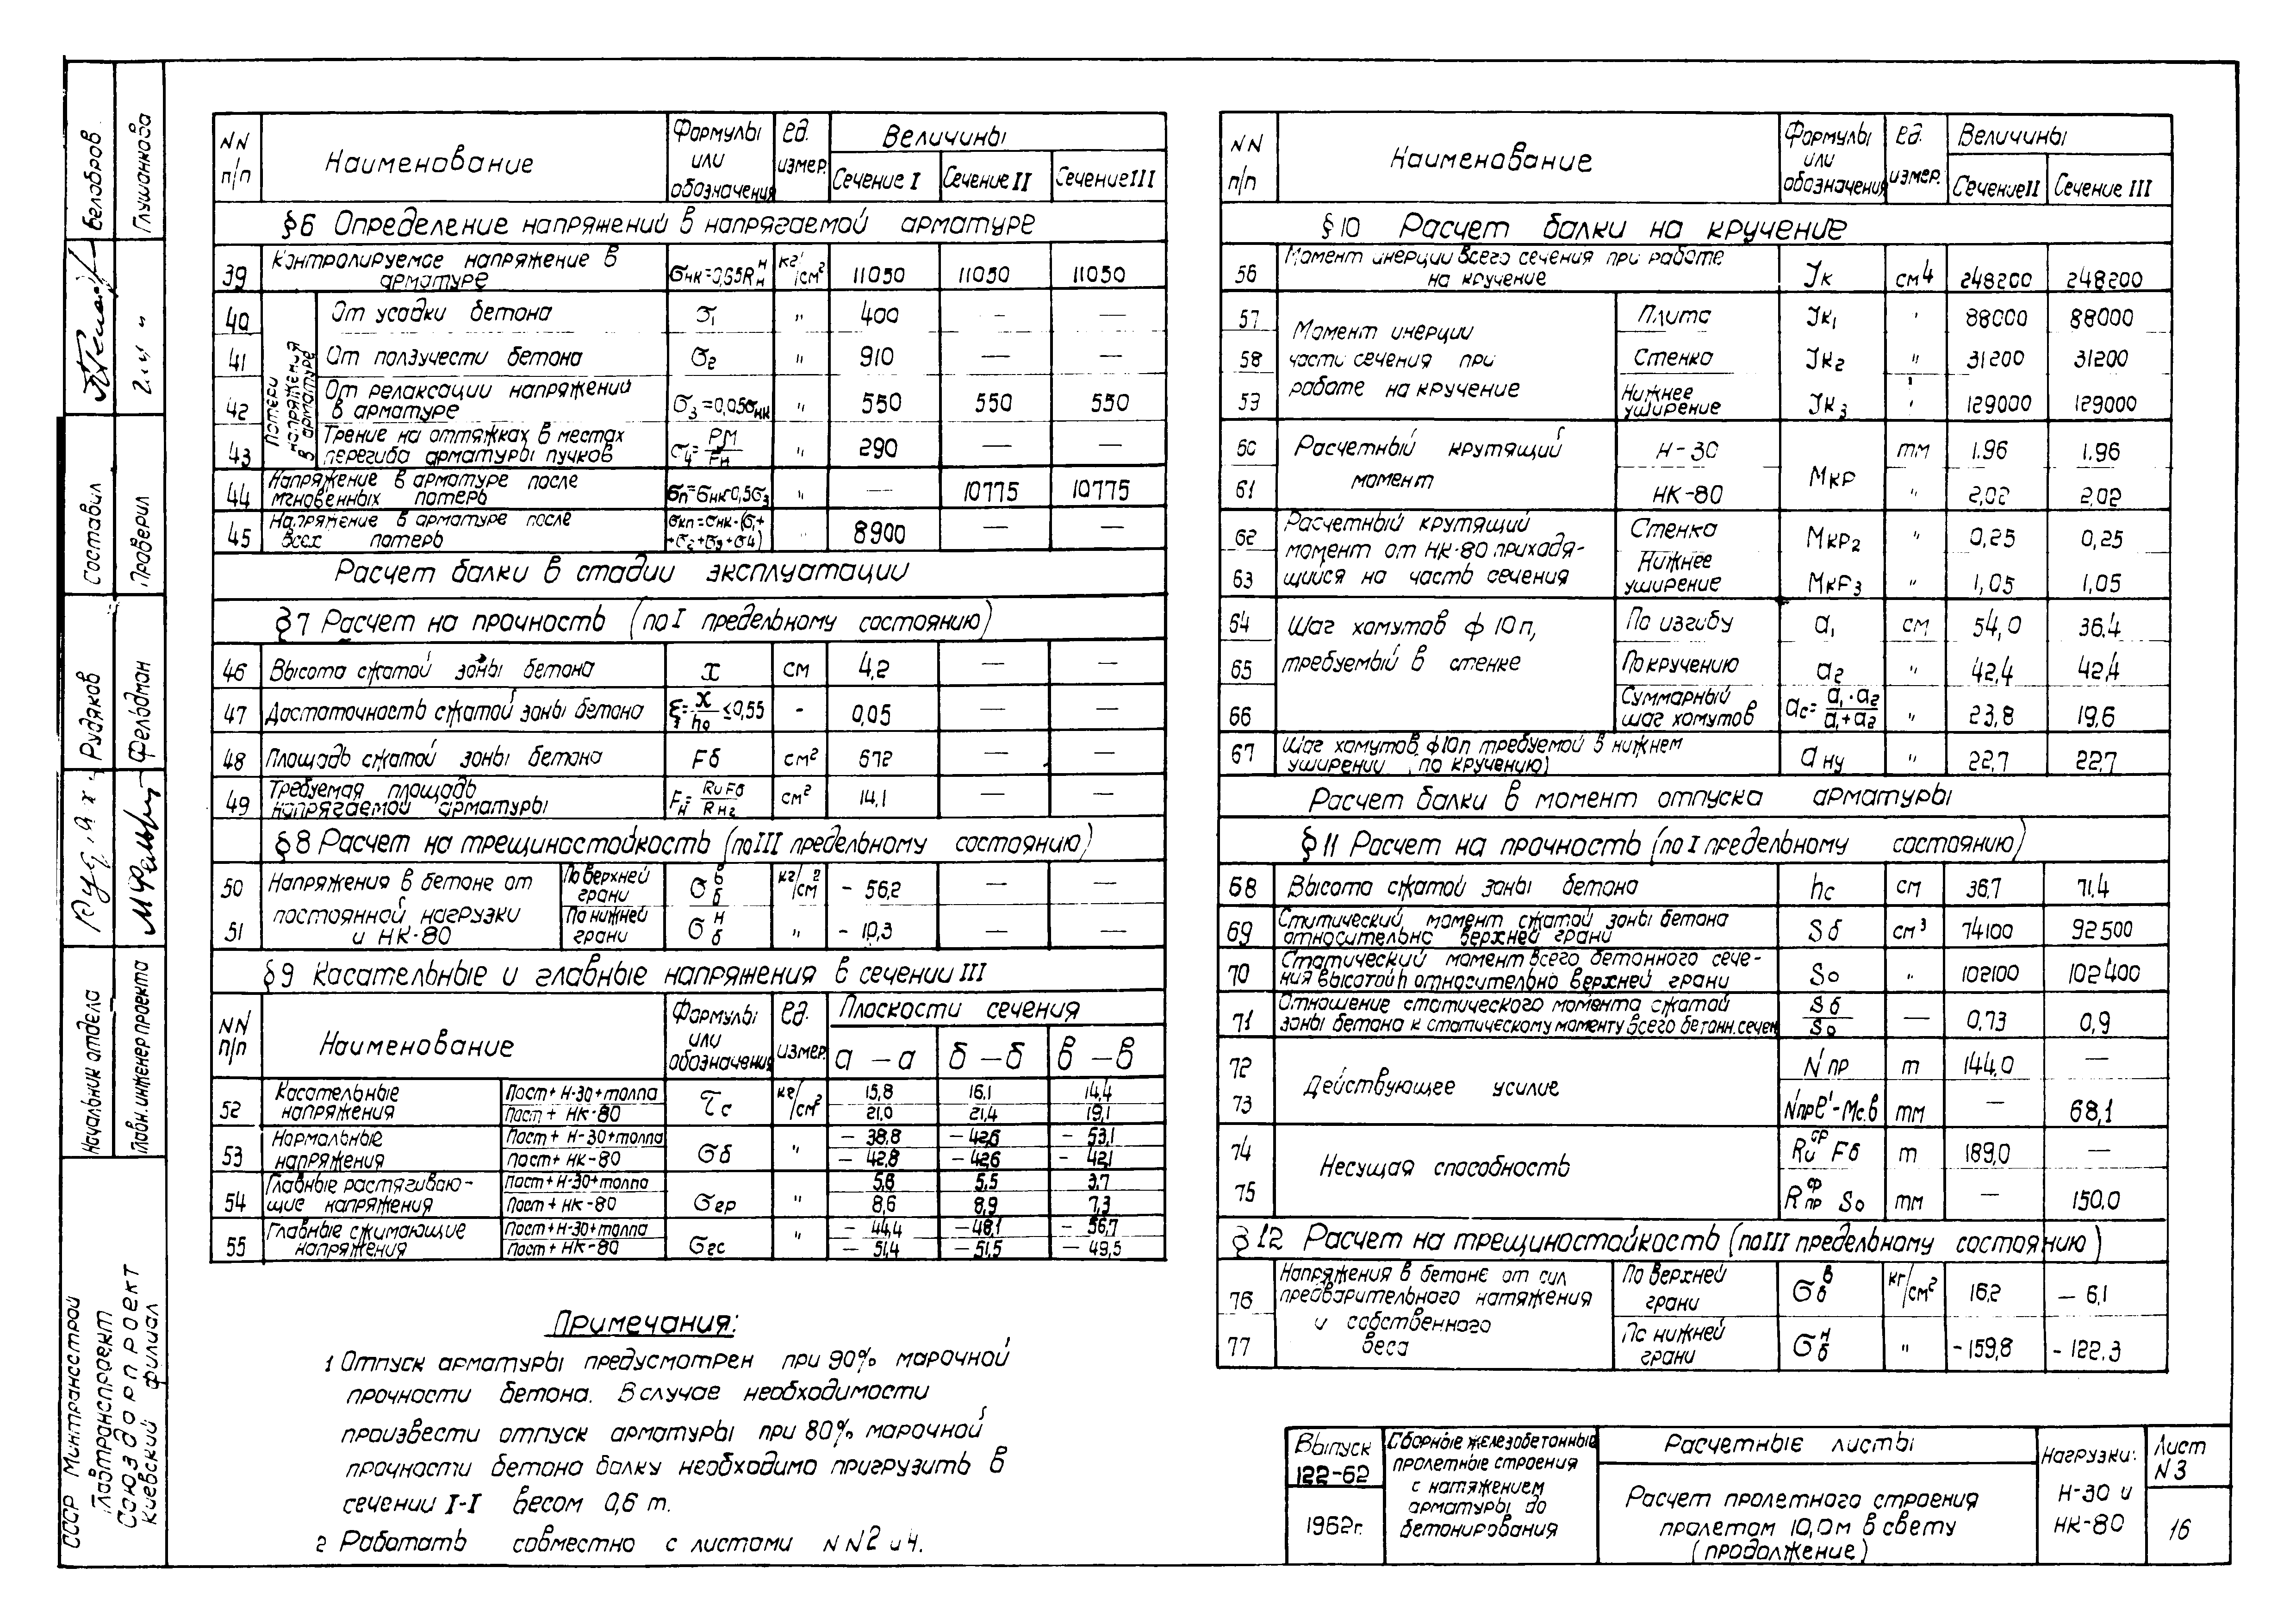 NN п/п | Наименование | Формулы или обозначения | ед. измер. | Величины
Сечение I | Сечение II | Сечение III
§6 Определение напряжений в напрягаемой арматуре
39 | Контролируемое напряжение в арматуре | σнк=0,65Rнн | кг/см² | 11050 | 11050 | 11050
Потери напряжения в арматуре
40 | От усадки бетона | σ1 | " | 400 | — | —
41 | От ползучести бетона | σ2 | " | 910 | — | —
42 | От релаксации напряжений в арматуре | σ3=0,05σнк | " | 550 | 550 | 550
43 | Трение на оттяжках в местах перегиба арматуры пучков | σ4=PM/Fн | " | 290 | — | —
44 | Напряжение в арматуре после мгновенных потерь | σп=σнк-0,5σ3 | " | — | 10775 | 10775
45 | Напряжение в арматуре после всех потерь | σкп=σнк-(σ1+σ2+σ3+σ4) | " | 8900 | — | —
Расчет балки в стадии эксплуатации
§7 Расчет на прочность (по I предельному состоянию)
46 | Высота сжатой зоны бетона | x | см | 4,2 | — | —
47 | Достаточность сжатой зоны бетона | ξ=x/h₀≤0,55 | - | 0,05 | — | —
48 | Площадь сжатой зоны бетона | Fб | см² | 672 | — | —
49 | Требуемая площадь напрягаемой арматуры | Fн=RuFб/Rн2 | см² | 14,1 | — | —
§8 Расчет на трещиностойкость (по III предельному состоянию)
50 | Напряжения в бетоне от постоянной нагрузки и НК-80 | По верхней грани | σбв | кг/см² | - 56,2 | — | —
51 | По нижней грани | σбн | " | - 10,3 | — | —
§9 Касательные и главные напряжения в сечении III
NN п/п | Наименование | Формулы или обозначения | ед. измер. | Плоскости сечения
а – а | б – б | в – в
52 | Касательные напряжения | Пост+Н-30+толпа | τс | кг/см² | 15,8 | 16,1 | 14,4
Пост + НК-80 | 21,0 | 21,4 | 19,1
53 | Нормальные напряжения | Пост+Н-30+толпа | σб | " | – 38,8 | – 42,6 | – 53,1
Пост+НК-80 | – 42,8 | – 42,6 | – 42,1
54 | Главные растягивающие напряжения | Пост+Н-30+толпа | σгр | " | 5,6 | 5,5 | 3,7
Пост+НК-80 | 8,6 | 8,9 | 7,3
55 | Главные сжимающие напряжения | Пост+Н-30+толпа | σгс | " | – 44,4 | – 48,1 | – 56,7
Пост+НК-80 | – 51,4 | – 51,5 | – 49,5
Примечания:
1 Отпуск арматуры предусмотрен при 90% марочной
прочности бетона. В случае необходимости
произвести отпуск арматуры при 80% марочной
прочности бетона балку необходимо пригрузить в
сечении I-I весом 0,6 т.
2 Работать совместно с листами NN2 и 4.
NN п/п | Наименование | Формулы или обозначения | ед. измер. | Величины
Сечение II | Сечение III
§10 Расчет балки на кручение
56 | Момент инерции всего сечения при работе на кручение | Jк | см4 | 248200 | 248200
57 | Момент инерции части сечения при работе на кручение | Плита | Jк1 | " | 88000 | 88000
58 | Стенка | Jк2 | " | 31200 | 31200
59 | Нижнее уширение | Jк3 | " | 129000 | 129000
60 | Расчетный крутящий момент | Н-30 | Мкр | тм | 1.96 | 1.96
61 | НК-80 | " | 2,02 | 2,02
62 | Расчетный крутящий момент от НК-80 приходящийся на часть сечения | Стенка | Мкр2 | " | 0,25 | 0,25
63 | Нижнее уширение | Мкр3 | " | 1,05 | 1,05
64 | Шаг хомутов ф 10п, требуемый в стенке | По изгибу | а1 | см | 54,0 | 36.4
65 | По кручению | а2 | " | 42,4 | 42,4
66 | Суммарный шаг хомутов | ас=а1·а2/а1+а2 | " | 23,8 | 19,6
67 | Шаг хомутов ф10п требуемой в нижнем уширении (по кручению) | ану | " | 22,7 | 22,7
Расчет балки в момент отпуска арматуры
§11 Расчет на прочность (по I предельному состоянию)
68 | Высота сжатой зоны бетона | hс | см | 36,7 | 71,4
69 | Статический момент сжатой зоны бетона относительно верхней грани | Sб | см³ | 74100 | 92500
70 | Статический момент всего бетонного сечения высотой h относительно верхней грани | Sо | " | 102100 | 102400
71 | Отношение статического момента сжатой зоны бетона к статическому моменту всего бетонн. сечен | Sб/Sо | — | 0,73 | 0,9
72 | Действующее усилие | Nпр | т | 144,0 | —
73 | Nпре'-Мс.в | тм | — | 68,1
74 | Несущая способность | Ruср Fб | т | 189,0 | —
75 | Rпрср Sо | тм | — | 150,0
§12 Расчет на трещиностойкость (по III предельному состоянию)
76 | Напряжения в бетоне от сил предварительного натяжения и собственного веса | По верхней грани | σбв | кг/см² | 16,2 | – 6,1
77 | По нижней грани | σбн | " | - 159,8 | - 122,3
Выпуск 122-62
1962г.
Сборные железобетонные
пролетные строения
с натяжением
арматуры до
бетонирования
Расчетные листы
Расчет пролетного строения
пролетом 10,0м в свету
(продолжение)
Нагрузки:
Н-30 и
НК-80
Лист
N3
16
СССР Минтрансстрой
Главтранспроект
Союздорпроект
Киевский филиал
Начальник отдела | Рудяков | Составил | Белобров
Главн. инженер проекта | Фельдман | Проверил | Глушанкова